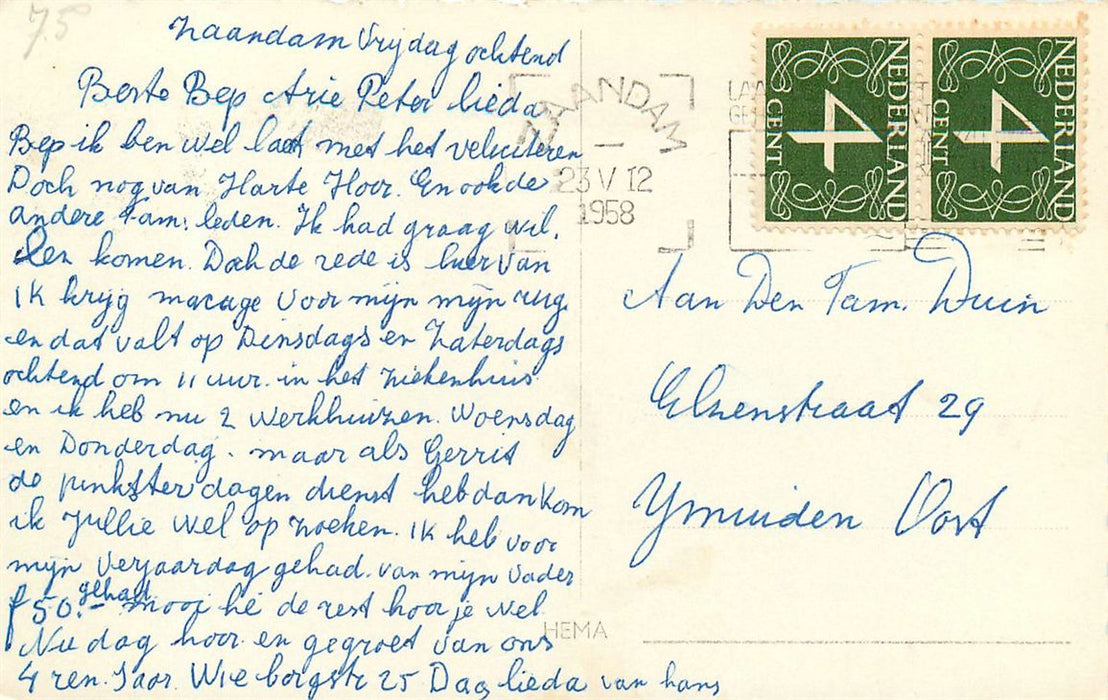 75
Zaandam Vrijdag ochtend
Beste Bep Arie Peter lieda
Bep ik ben wel laat met het veliciteren
Doch nog van Harte Hoor. En ook de
andere Fam. leden. Ik had graag wil.
len komen. Doch de rede is hier van
ik krijg macage voor mijn mijn rug
en dat valt op Dinsdags en Zaterdags
ochtend om 11 uur. in het ziekenhuis
en ik heb nu 2 werkhuizen. Woensdag
en Donderdag. maar als Gerrit
de pinksterdagen dienst heb dan kom
ik Jullie wel op zoeken. ik heb voor
mijn verjaardag gehad. van mijn vader
f 50.- gehad mooi hé de rest hoor je wel
Nu dag hoor en gegroet van ons
4 ren. Jaar. Wieborgstr 25 Dag lieda van hans
HEMA
ZAANDAM
23 V 12
1958
NEDERLAND
4
CENT
NEDERLAND
4
CENT
Aan Den Fam. Duin
Elzenstraat 29
Ymuiden Oost